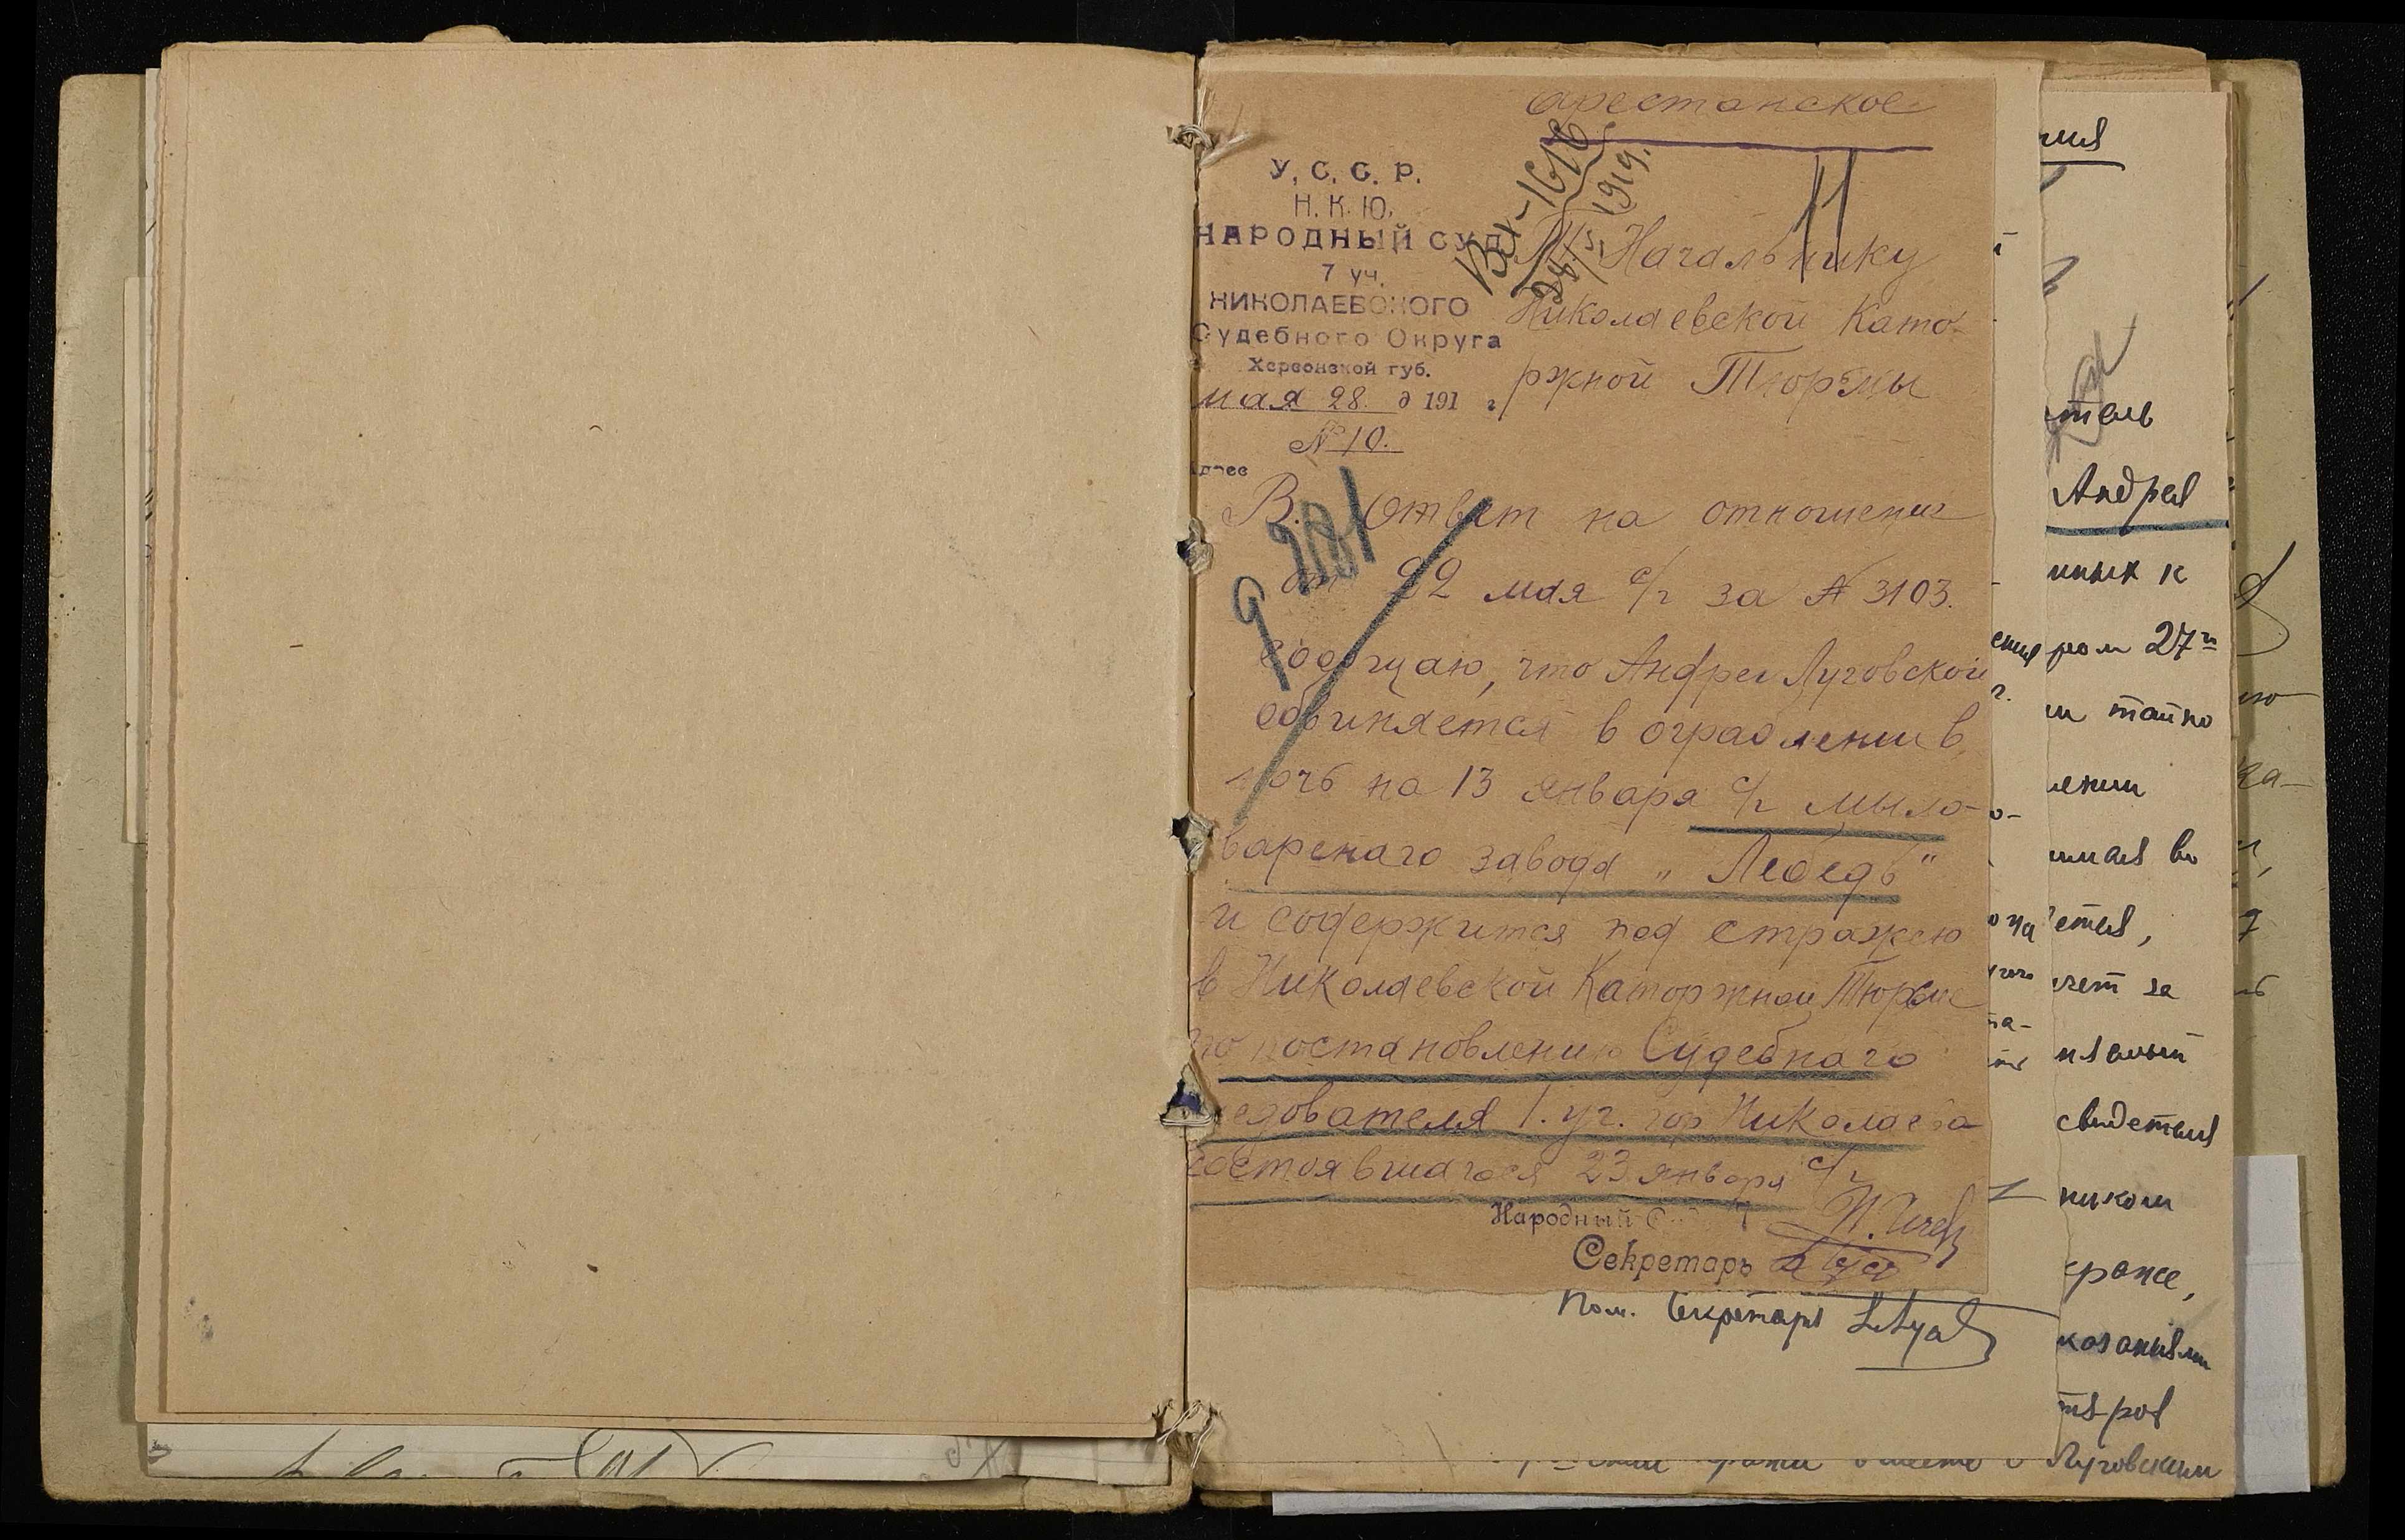 арестанское
У. С. С. Р.
Н. К. Ю.
НАРОДНЫЙ СУД
7 уч.
НИКОЛАЕВСКОГО
Судебного Округа
Херсонской губ.
мая 28 д 191 г
№ 10.
Вх-1616
28/5 1919.
Т. Начальнику
Николаевской Като-
ржной Тюрмы
В. Ответ на отношение
от 22 мая с/г за № 3103.
сообщаю, что Андрей Луговской
обвиняется в ограблении в
ночь на 13 января с/г мыло-
варенаго завода „Лебедь"
и содержится под стражею
в Николаевской Каторжной Тюрме
по постановлению Судебнаго
едователя 1. уч. гор Николаева
состоявшагося 23 января с/г
Народный
Секретарь
Пом. Секретаря
Андрея
ром 27
тайно
лении
чает за
свидетеля
ником
краже,
казаниям
Луговским